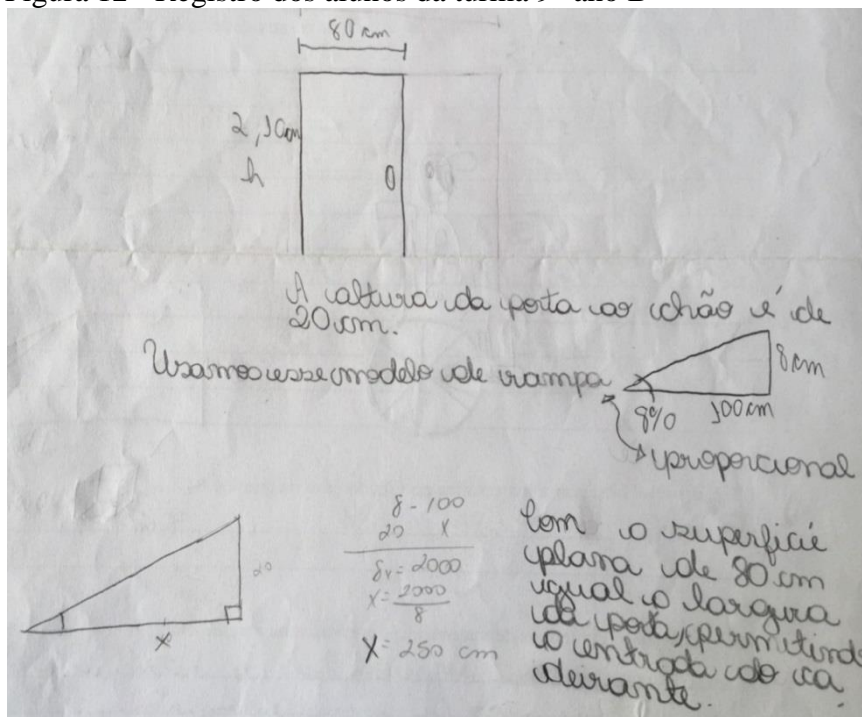 Figura 12 - Registro dos alunos da turma 9º ano B
80 cm
2,10cm
h
A altura da porta ao chão é de
20 cm.
Usamos esse modelo de rampa
8 cm
8% 100 cm
proporcional
8 - 100
20 X
8x = 2000
x = 2000
8
X = 250 cm
20
x
Com o superficíe
plana de 80 cm
igual o largura
da porta, permitind
o entrada do ca
deirante.